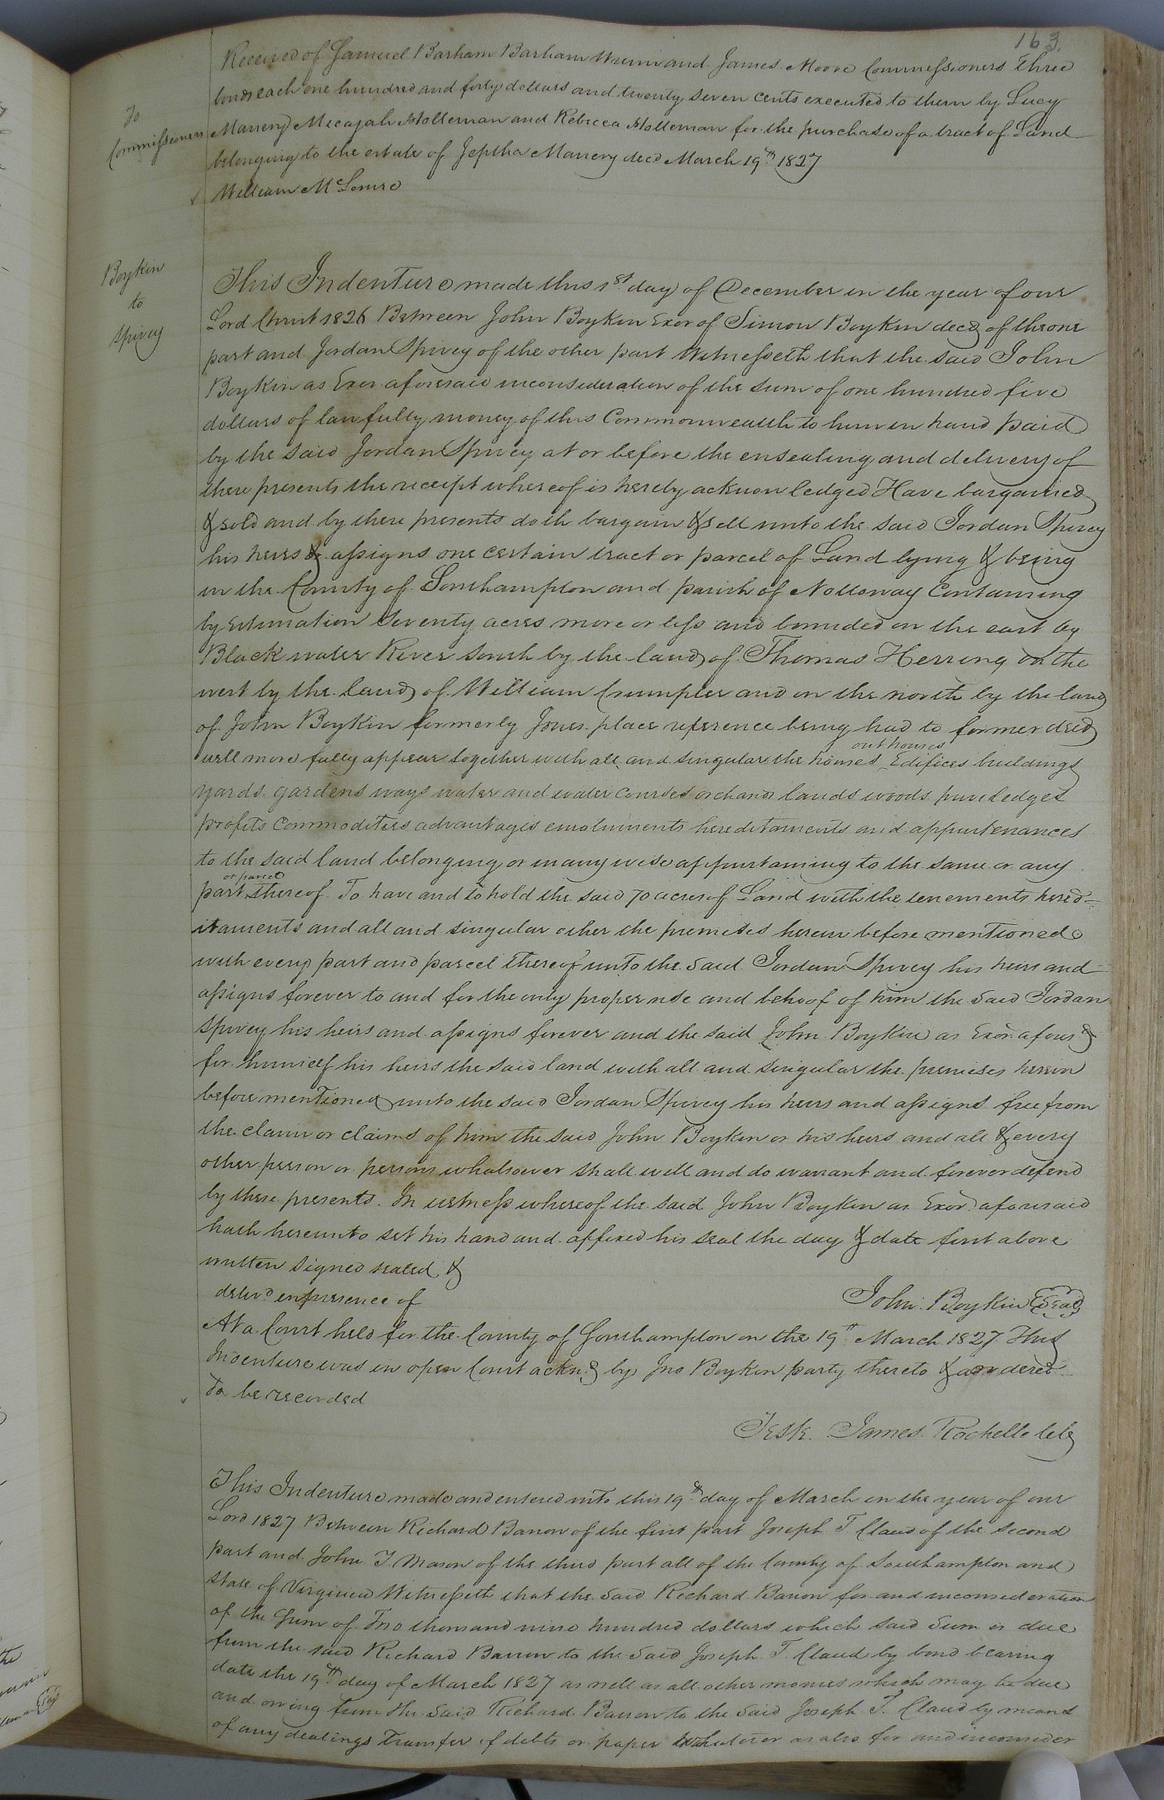 163.
Received of Samuel Barham Barham and James Moore Commissioners three
bonds each one hundred and forty dollars and twenty seven cents executed to them by Lucy
To
Commissioners
Marrery Mecajah Holleman and Rebecca Holleman for the purchase of a tract of Land
belonging to the estate of Jeptha Marrery decd March 19th 1827
William
Boykin
to
Spivey
This Indenture made this 1st day of December in the year of our
Lord Christ 1826 Between John Boykin Exor of Simon Boykin decd of the one
part and Jordan Spivey of the other part Witnesseth that the said John
Boykin as Exor aforesaid in consideration of the sum of one hundred five
dollars of lawfully money of this Commonwealth to him in hand paid
by the said Jordan Spivey at or before the ensealing and delivery of
these presents the receipt whereof is hereby acknowledged Have bargained
& sold and by these presents doth bargain & sell unto the said Jordan Spivey
his heirs & assigns one certain tract or parcel of Land lying & being
in the County of Southampton and parish of Nottoway Containing
by Estimation Seventy acres more or less and bounded on the east by
Black water River South by the land of Thomas Herring on the
west by the land of William Crumpler and on the north by the land
of John Boykin formerly Jones place reference being had to former deed
will more fully appear together with all and singular the houses out houses Edifices buildings
yards gardens ways water and water courses orchards lands woods priviledges
profits commodities advantages emoluments hereditaments and appurtenances
to the said land belonging or in any wise appurtaining to the same or any
part or parcel thereof. To have and to hold the said 70 acres of Land with the tenements hered-
itaments and all and singular other the premises herein before mentioned
with every part and parcel thereof unto the said Jordan Spivey his heirs and
assigns forever to and for the only proper use and behoof of him the said Jordan
Spivey his heirs and assigns forever and the said John Boykin as Exor afours d
for himself his heirs the said land with all and singular the premises herein
before mentioned unto the said Jordan Spivey his heirs and assigns free from
the claim or claims of him the said John Boykin or his heirs and all & every
other person or persons whatsoever shall will and do warrant and forever defend
by these presents. In witness whereof the said John Boykin as Exor aforesaid
hath hereunto set his hand and affixed his seal the day & date first above
written signed sealed &
delivd in presence of
John Boykin (Seal)
At a Court held for the County of Southampton on the 19th March 1827 This
Indenture was in open Court acknd by Jno Boykin party thereto & ordered
To be recorded
Teste. James Rochelle clk
This Indenture made and entered into this 19th day of March in the year of our
Lord 1827 Between Richard Barrow of the first part Joseph T Claud of the second
part and John T Mason of the third part all of the County of Southampton and
State of Virginia Witnesseth that the said Richard Barrow for and in consideration
of the sum of Two thousand nine hundred dollars which said sum is due
from the said Richard Barrow to the said Joseph T. Claud by bond bearing
date the 19th day of March 1827 as well as all other monies which may be due
and owing from the said Richard Barrow to the said Joseph T. Claud by means
of any dealings Transfer of debts or paper whatever as also for and in consider